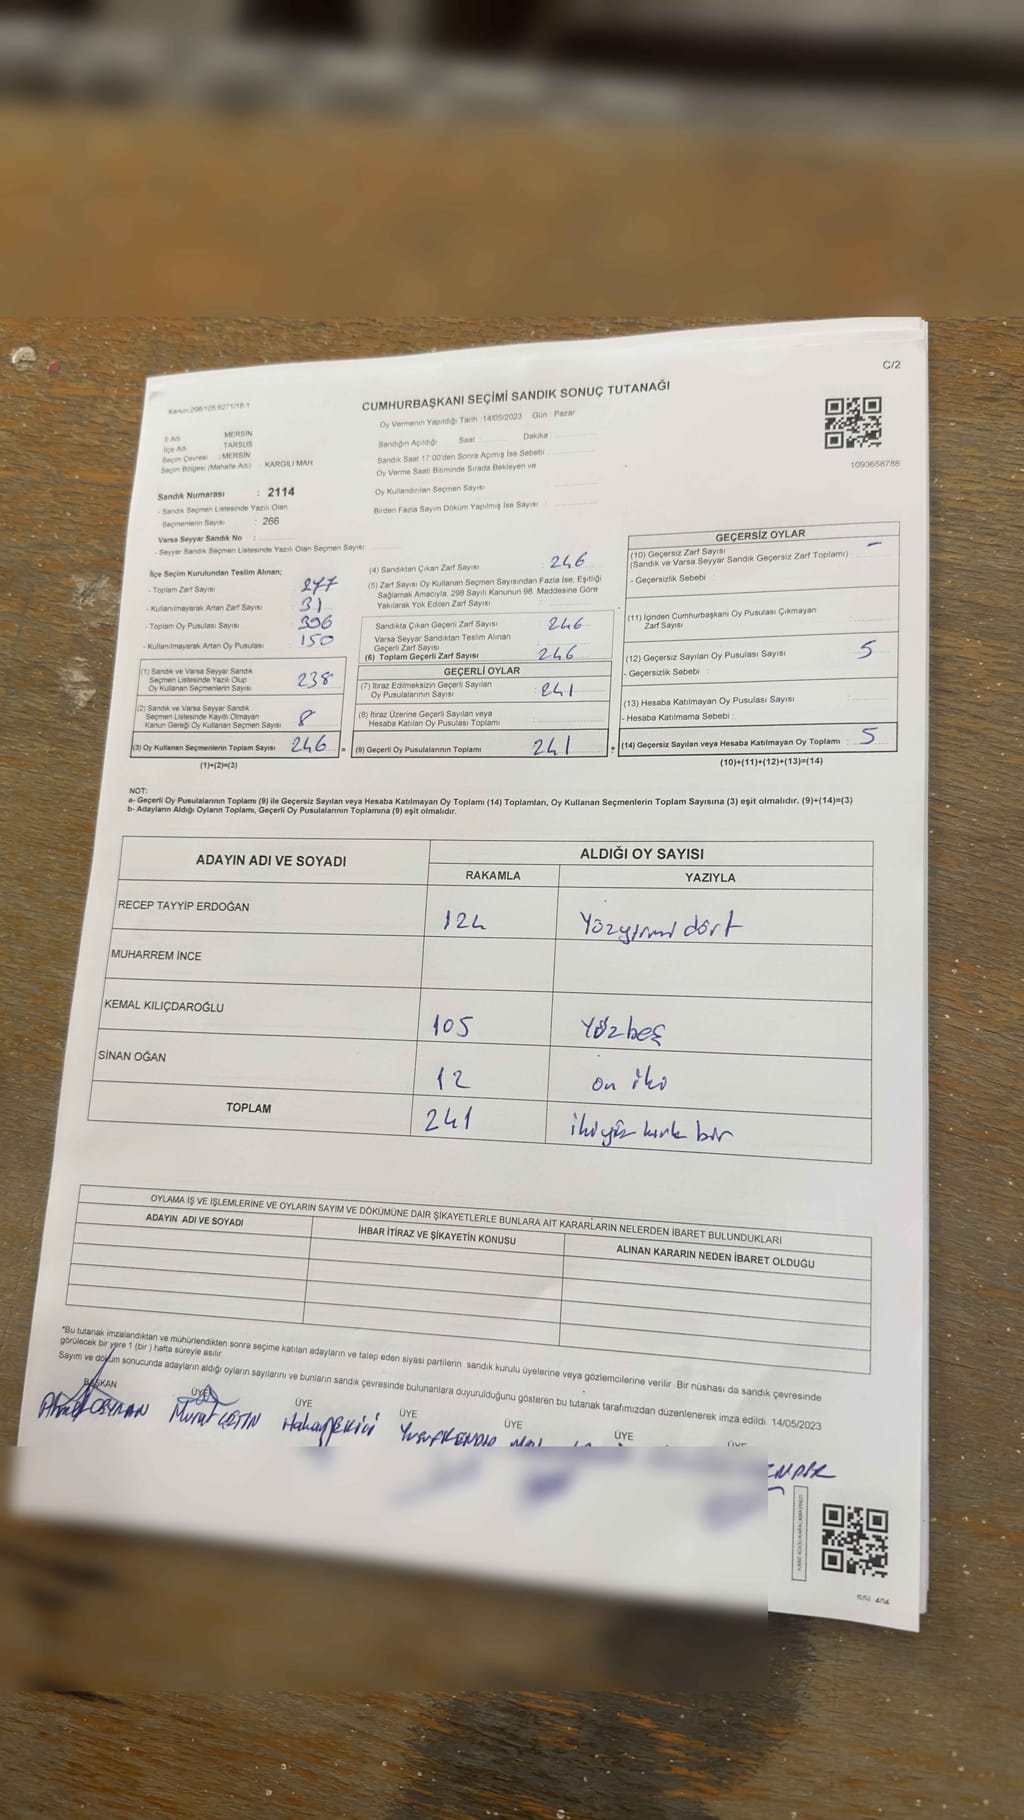 C/2
Kanun:298/105:6271/18-1
CUMHURBAŞKANI SEÇİMİ SANDIK SONUÇ TUTANAĞI
Oy Vermenin Yapıldığı Tarih :14/05/2023 Gün : Pazar
İl Adı : MERSİN
İlçe Adı : TARSUS
Seçim Çevresi : MERSİN
Seçim Bölgesi (Mahalle Adı) : KARGILI MAH
Sandığın Açıldığı Saat Dakika
Sandık Saat 17:00'den Sonra Açılmış İse Sebebi :
Oy Verme Saati Bitiminde Sırada Bekleyen ve
Oy Kullandırılan Seçmen Sayısı :
Birden Fazla Sayım Döküm Yapılmış İse Sayısı :
1093658788
Sandık Numarası : 2114
- Sandık Seçmen Listesinde Yazılı Olan
Seçmenlerin Sayısı : 266
Varsa Seyyar Sandık No :
- Seyyar Sandık Seçmen Listesinde Yazılı Olan Seçmen Sayısı:
İlçe Seçim Kurulundan Teslim Alınan;
- Toplam Zarf Sayısı : 277
- Kullanılmayarak Artan Zarf Sayısı : 31
- Toplam Oy Pusulası Sayısı : 396
- Kullanılmayarak Artan Oy Pusulası : 150
(1) Sandık ve Varsa Seyyar Sandık
Seçmen Listesinde Yazılı Olup
Oy Kullanan Seçmenlerin Sayısı : 238
(2) Sandık ve Varsa Seyyar Sandık
Seçmen Listesinde Kayıtlı Olmayan
Kanun Gereği Oy Kullanan Seçmen Sayısı : 8
(3) Oy Kullanan Seçmenlerin Toplam Sayısı : 246 =
(1)+(2)=(3)
(4) Sandıktan Çıkan Zarf Sayısı : 246
(5) Zarf Sayısı Oy Kullanan Seçmen Sayısından Fazla İse, Eşitliği
Sağlamak Amacıyla, 298 Sayılı Kanunun 98. Maddesine Göre
Yakılarak Yok Edilen Zarf Sayısı :
Sandıkta Çıkan Geçerli Zarf Sayısı : 246
Varsa Seyyar Sandıktan Teslim Alınan
Geçerli Zarf Sayısı :
(6) Toplam Geçerli Zarf Sayısı : 246
GEÇERLİ OYLAR
(7) İtiraz Edilmeksizin Geçerli Sayılan
Oy Pusulalarının Sayısı : 241
(8) İtiraz Üzerine Geçerli Sayılan veya
Hesaba Katılan Oy Pusulası Toplamı :
(9) Geçerli Oy Pusulalarının Toplamı : 241 +
GEÇERSİZ OYLAR
(10) Geçersiz Zarf Sayısı
(Sandık ve Varsa Seyyar Sandık Geçersiz Zarf Toplamı) : -
- Geçersizlik Sebebi :
(11) İçinden Cumhurbaşkanı Oy Pusulası Çıkmayan
Zarf Sayısı :
(12) Geçersiz Sayılan Oy Pusulası Sayısı : 5
- Geçersizlik Sebebi :
(13) Hesaba Katılmayan Oy Pusulası Sayısı :
- Hesaba Katılmama Sebebi :
(14) Geçersiz Sayılan veya Hesaba Katılmayan Oy Toplamı : 5
(10)+(11)+(12)+(13)=(14)
NOT:
a- Geçerli Oy Pusulalarının Toplamı (9) ile Geçersiz Sayılan veya Hesaba Katılmayan Oy Toplamı (14) Toplamları, Oy Kullanan Seçmenlerin Toplam Sayısına (3) eşit olmalıdır. (9)+(14)=(3)
b- Adayların Aldığı Oyların Toplamı, Geçerli Oy Pusulalarının Toplamına (9) eşit olmalıdır.
ADAYIN ADI VE SOYADI ALDIĞI OY SAYISI
RAKAMLA YAZIYLA
RECEP TAYYİP ERDOĞAN 124 Yüzyirmi dört
MUHARREM İNCE
KEMAL KILIÇDAROĞLU 105 Yüzbeş
SİNAN OĞAN 12 on iki
TOPLAM 241 ikiyüz kırk bir
OYLAMA İŞ VE İŞLEMLERİNE VE OYLARIN SAYIM VE DÖKÜMÜNE DAİR ŞİKAYETLERLE BUNLARA AİT KARARLARIN NELERDEN İBARET BULUNDUKLARI
ADAYIN ADI VE SOYADI İHBAR İTİRAZ VE ŞİKAYETİN KONUSU ALINAN KARARIN NEDEN İBARET OLDUĞU
*Bu tutanak imzalandıktan ve mühürlendikten sonra seçime katılan adayların ve talep eden siyasi partilerin sandık kurulu üyelerine veya gözlemcilerine verilir. Bir nüshası da sandık çevresinde
görülecek bir yere 1 (bir) hafta süreyle asılır.
Sayım ve döküm sonucunda adayların aldığı oyların sayılarını ve bunların sandık çevresinde bulunanlara duyurulduğunu gösteren bu tutanak tarafımızdan düzenlenerek imza edildi. 14/05/2023
BAŞKAN ÜYE ÜYE ÜYE ÜYE ÜYE ÜYE
Murat ÇETİN